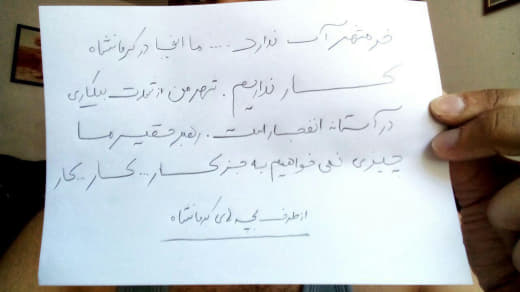 خرمشهر آب ندارد .... ما اینجا در کرمانشاه
کار نداریم. شهر من از شدت بیکاری
در آستانه انفجار است. رهبر حقیر ما
چیزی نمی خواهیم به جز کار... کار.. کار
از طرف بچه های کرمانشاه